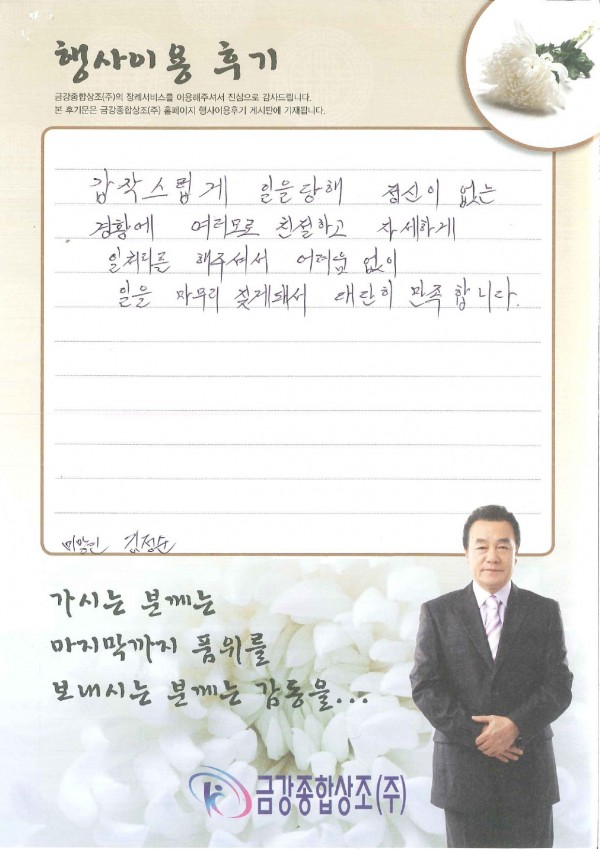 행사이용 후기
금강종합상조(주)의 장례서비스를 이용해주셔서 진심으로 감사드립니다.
본 후기문은 금강종합상조(주) 홈페이지 행사이용후기 게시판에 기재됩니다.
갑작스럽게 일을당해 정신이 없는
경황에 여러모로 친절하고 자세하게
일처리를 해주셔서 어려움 없이
일을 마무리 짖게돼서 대단히 만족합니다.
미망인 김정순
가시는 분께는
마지막까지 품위를
보내시는 분께는 감동을...
금강종합상조(주)